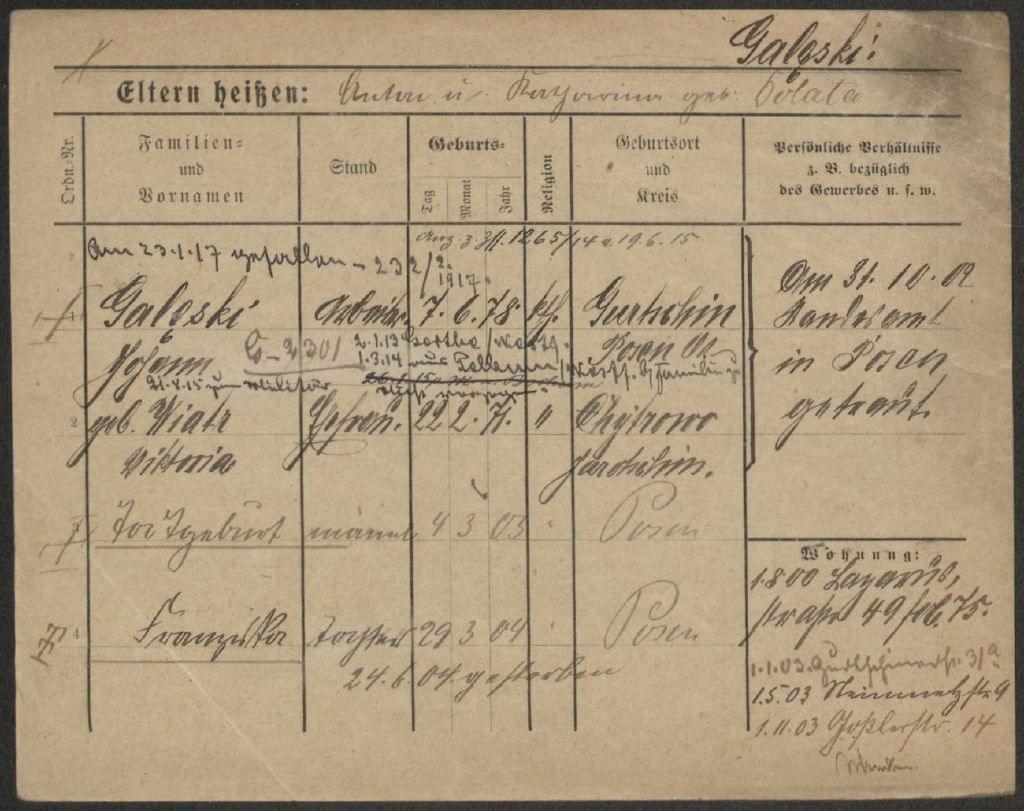 Galęski.
Eltern heißen: Anton u. Katharina geb. Polata
Ordn.-Nr.
Familien-
und
Vornamen
Stand
Geburts-
Tag
Monat
Jahr
Religion
Geburtsort
und
Kreis
Persönliche Verhältnisse
z. B. bezüglich
des Gewerbes u. s. w.
1265/14 v. 19.6.15
Am 23.1.17 gefallen - 232/2. 1917.
1
Galęski Arbeiter. 7. 6. 78. kth. Gurtschin
Johann Posen Os
2.1.13
1.3.14 aus
21.4.15 zum Militär
2
geb. Wiatr Ehefrau. 22 2. 71. " Chytrowo
Viktoria Jarotschin.
Am 31. 10. 02
Standesamt
in Posen
getraut.
Totgeburt männl 4 3 03 " Posen
4
Franziska Tochter 29 3 04 " Posen
24.6.04. gestorben
Wohnung:
1.8 00 Lazarus,
straße 49
1.1.03. Gurtschinerstr. 31a
1.5.03
1.11.03 Goßlerstr. 14